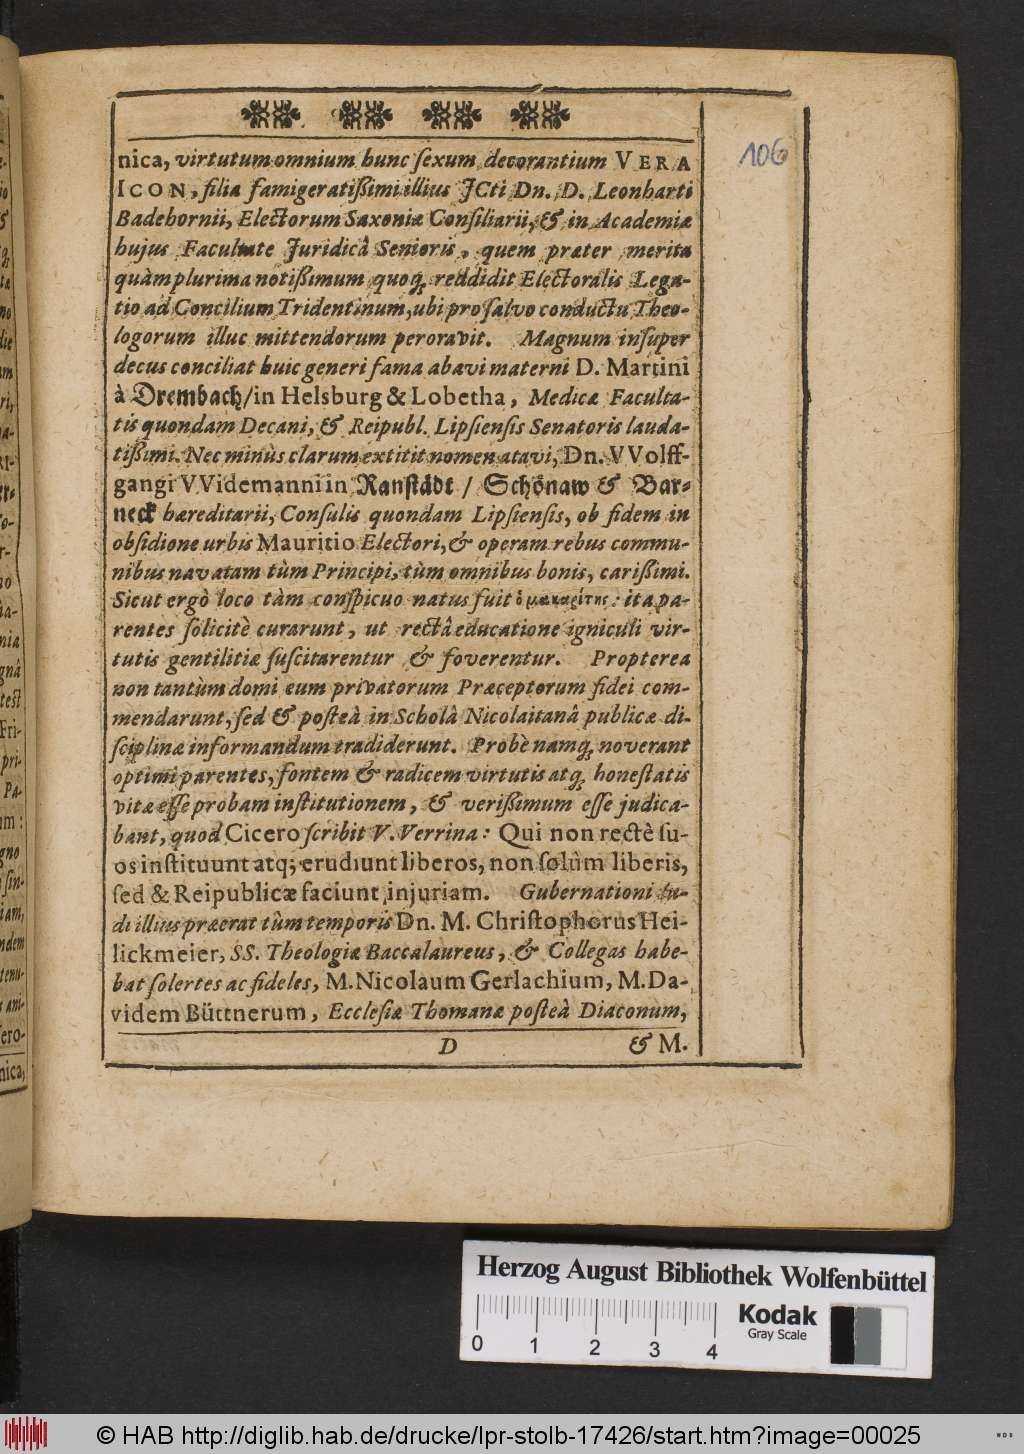 nica, virtutum omnium hunc ſexum decorantium VERA
ICON, filia famigeratiſſimi illius JCti Dn. D. Leonharti
Badehornii, Electorum Saxoniæ Conſiliarii, & in Academiæ
hujus Facultate Juridicâ Senioris, quem præter merita
quàm plurima notiſſimum quoq; reddidit Electoralis Lega-
tio ad Concilium Tridentinum, ubi pro ſalvo conductu Theo-
logorum illuc mittendorum peroravit. Magnum inſuper
decus conciliat huic generi fama abavi materni D. Martini
à Drembach/in Helsburg & Lobetha, Medicæ Faculta-
tis quondam Decani, & Reipubl. Lipſienſis Senatoris lauda-
tiſſimi. Nec minùs clarum extitit nomen atavi, Dn. VVolff-
gangi VVidemanni in Ranſtädt / Schönaw & Bar-
neck hæreditarii, Conſulis quondam Lipſienſis, ob fidem in
obſidione urbis Mauritio Electori, & operam rebus commu-
nibus navatam tùm Principi, tùm omnibus bonis, cariſſimi.
Sicut ergò loco tàm conſpicuo natus fuit ὁ μακαρίτης: ita pa-
rentes ſolicitè curarunt, ut rectâ educatione igniculi vir-
tutis gentilitiæ ſuſcitarentur & foverentur. Propterea
non tantùm domi eum privatorum Præceptorum fidei com-
mendarunt, ſed & poſteà in Scholâ Nicolaitanâ publicæ di-
ſciplinæ informandum tradiderunt. Probè namq; noverant
optimi parentes, fontem & radicem virtutis atq; honeſtatis
vitæ eſſe probam inſtitutionem, & veriſſimum eſſe judica-
bant, quod Cicero ſcribit V. Verrina: Qui non rectè ſu-
os inſtituunt atq; erudiunt liberos, non ſolùm liberis,
ſed & Reipublicæ faciunt injuriam. Gubernationi lu-
di illius præerat tùm temporis Dn. M. Chriſtophorus Hei-
lickmeier, SS. Theologiæ Baccalaureus, & Collegas habe-
bat ſolertes ac fideles, M. Nicolaum Gerlachium, M. Da-
videm Büttnerum, Eccleſiæ Thomanæ poſteà Diaconum,
D & M.
106
Herzog August Bibliothek Wolfenbüttel
Kodak
Gray Scale
0 1 2 3 4
© HAB http://diglib.hab.de/drucke/lpr-stolb-17426/start.htm?image=00025